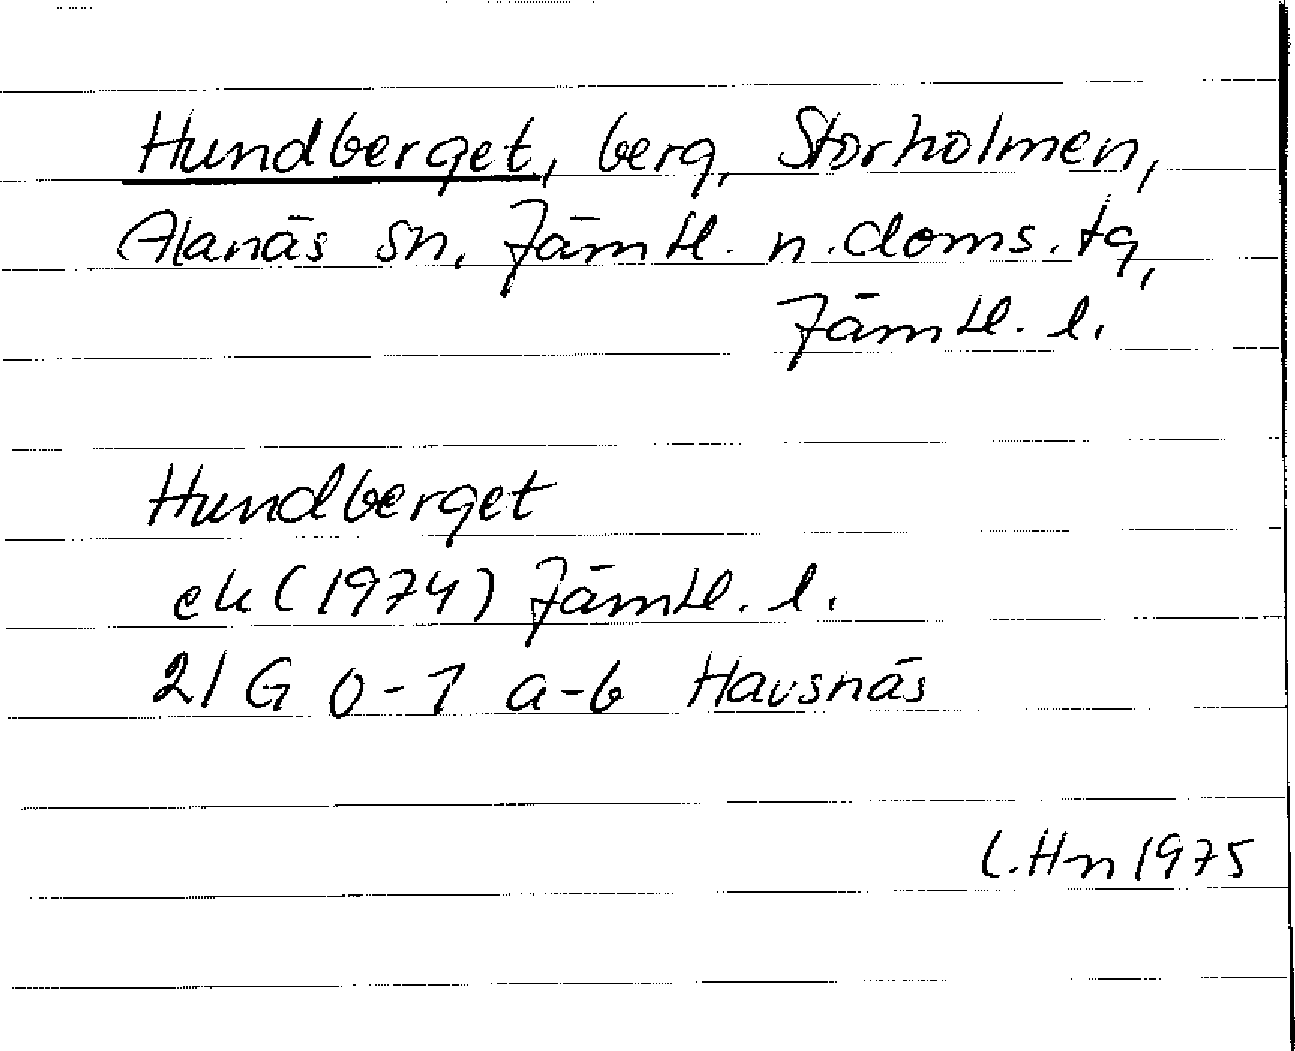 Hundberget, berg, Storholmen,
Alanäs sn, Jämtl. n. doms. tg,
Jämtl. l.
Hundberget
ek (1974) Jämtl. l.
21 G 0-1 a-b Havsnäs
L. Hn 1975